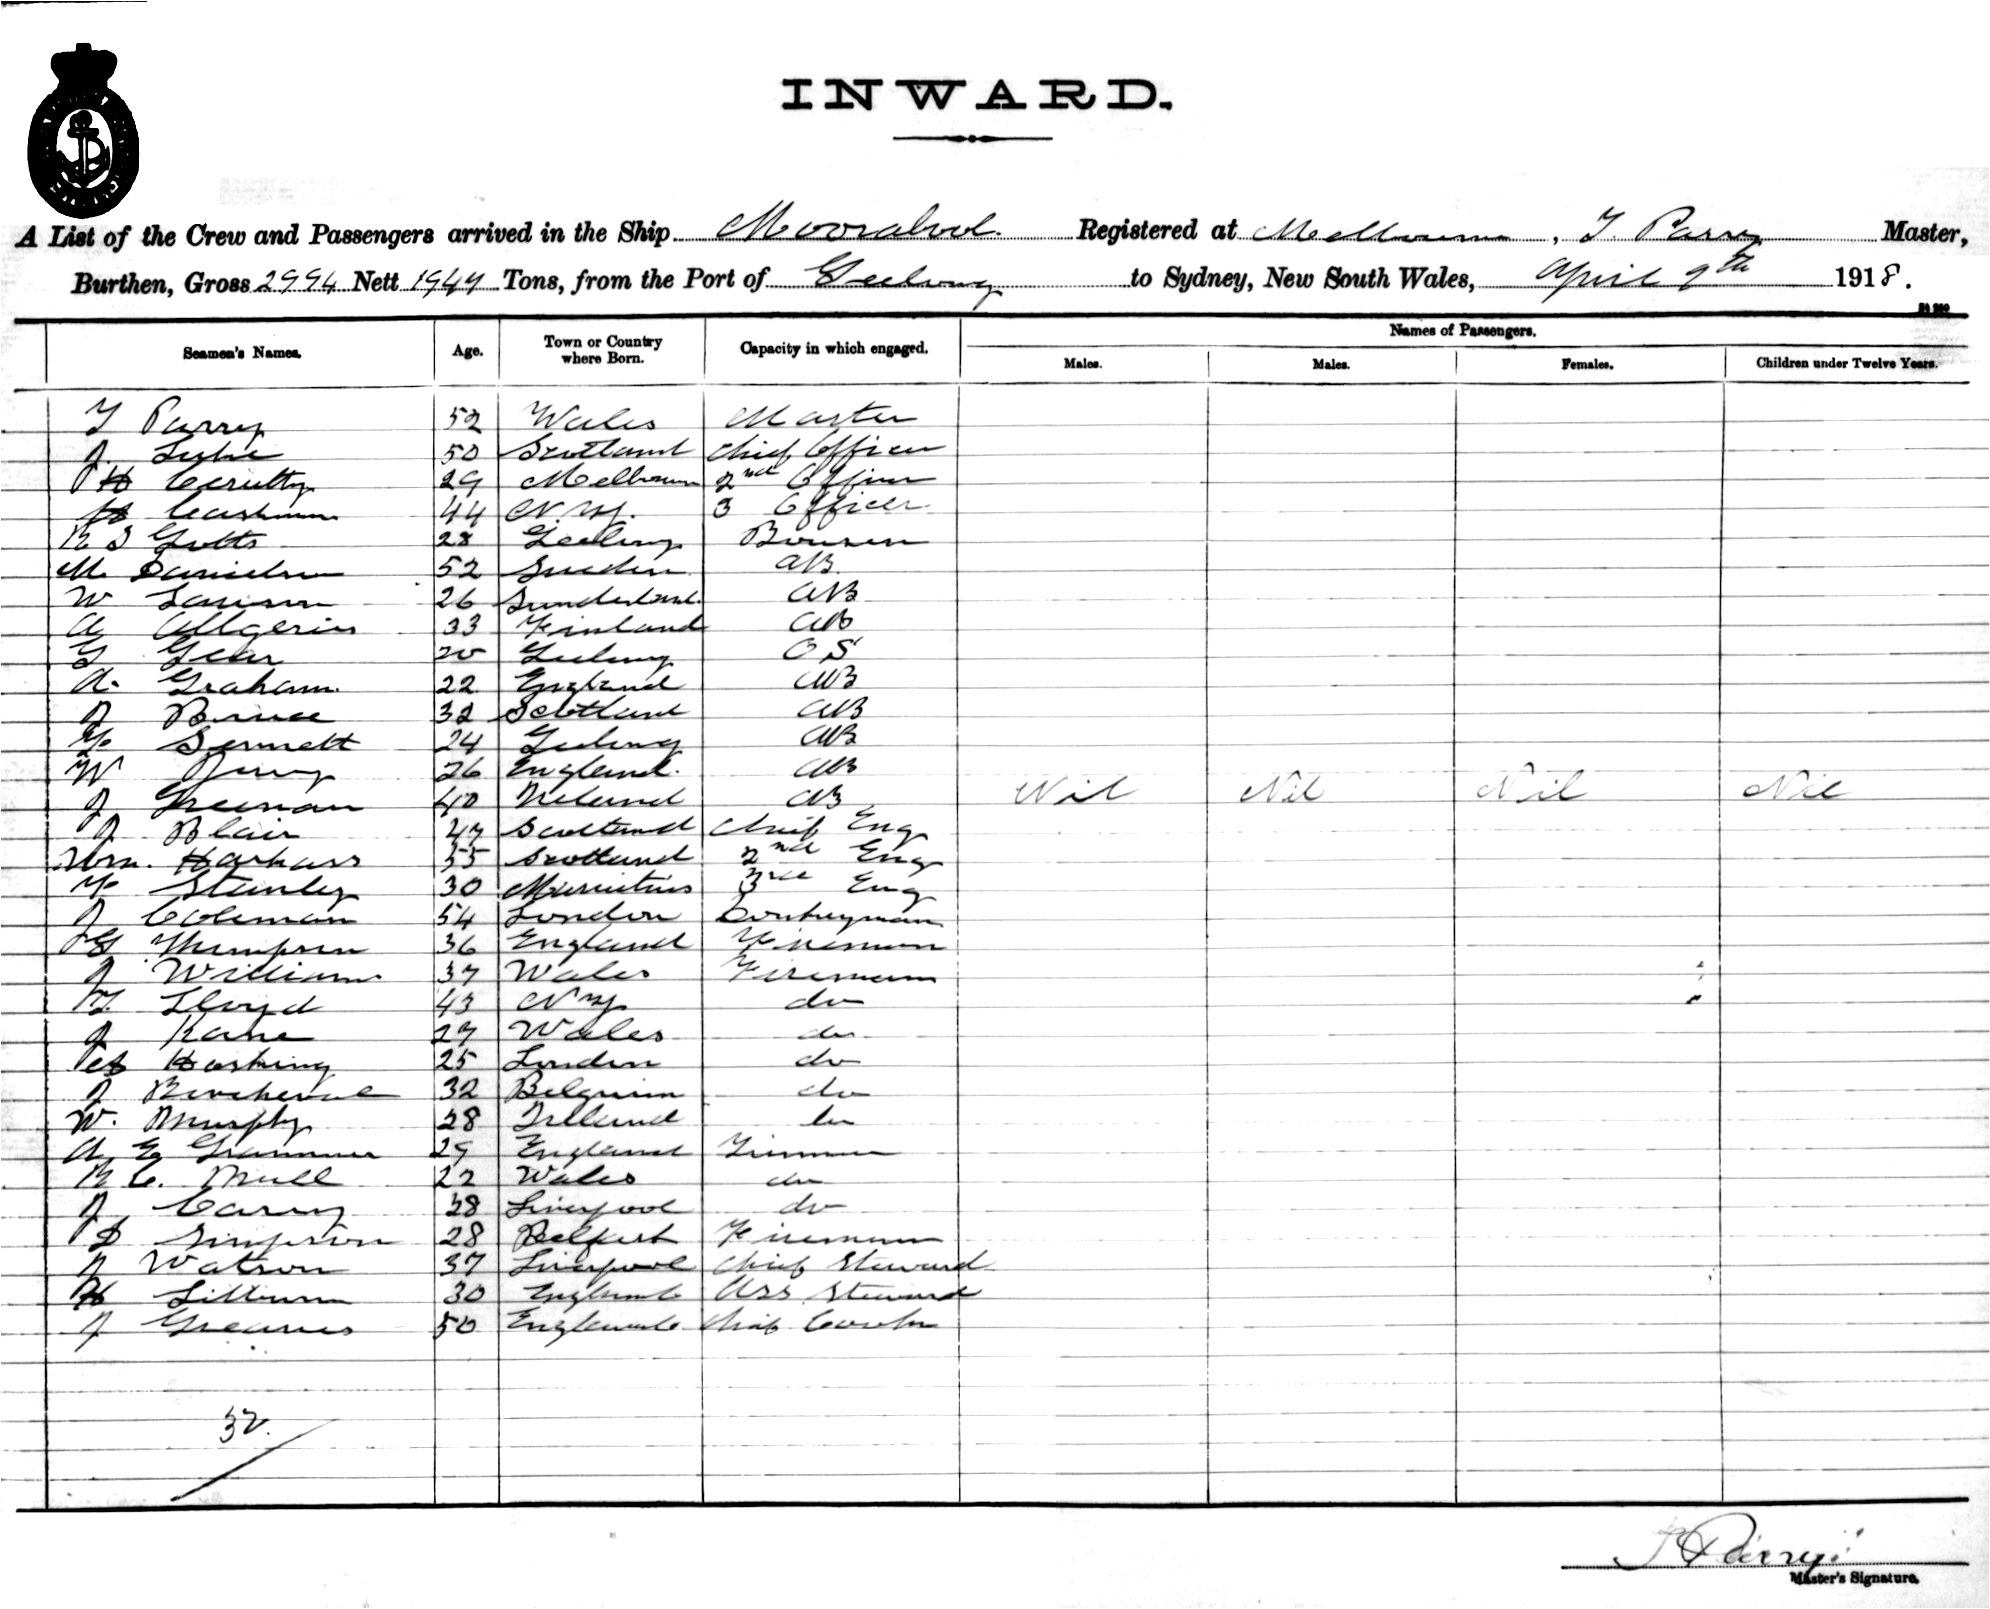 INWARD.
A List of the Crew and Passengers arrived in the Ship Moorabool Registered at Melbourne, T. Parry Master,
Burthen, Gross 2994 Nett 1944 Tons, from the Port of Geelong to Sydney, New South Wales, April 9th 1918.
Names of Passengers.
Seamen's Names. Age. Town or Country where Born. Capacity in which engaged. Males. Males. Females. Children under Twelve Years.
T Parry 52 Wales Master
J. 50 Scotland Chief Officer
H 29 Melbourn 2nd Officer
Cashman 44 N.Y. 3 Officer
R S Gotts 28 Geelong
M. Danielsen 52 Sweden AB
W 26 Sunderland AB
A 33 Finland AB
G Gear 20 Geelong OS
A. Graham 22 England AB
J Bruce 32 Scotland AB
F Sennett 24 Geelong AB
W 26 England AB
J 40 Ireland AB Nil Nil Nil Nil
J Blair 47 Scotland Chief Eng
Wm. Harkass 55 Scotland 2nd Eng
F Stanley 30 Mauritius 3rd Eng
J Coleman 54 London Donkeyman
G Thompson 36 England Fireman
J Williams 37 Wales Fireman
T. Lloyd 43 N Y do
J Kane 27 Wales do
Hosking 25 London do
J 32 Belgium do
W. Murphy 28 Ireland do
A E Grammer 29 England Trimmer
R C. Mull 22 Wales do
J Carey 28 Liverpool do
D Simpson 28 Belfast Fireman
J Watson 37 Liverpool Chief Steward
H Lilburn 30 England Ass Steward
J Greaves 50 England Chief Cook
32
T Parry
Master's Signature.